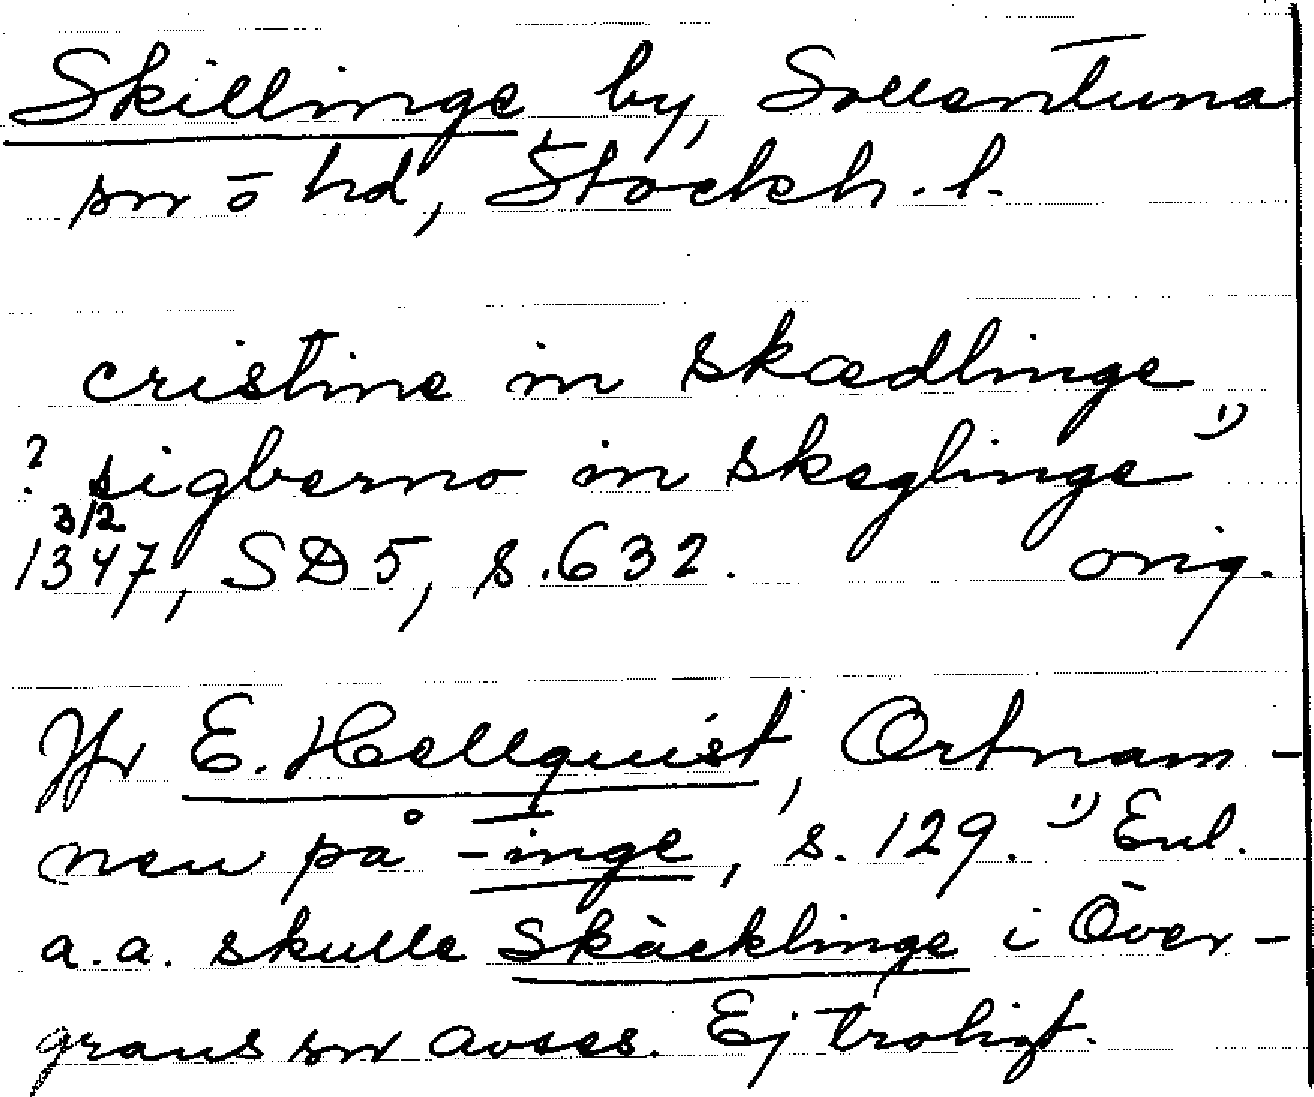 Skillinge by, Sollentuna
sn o hd, Stockh. l.
cristine in skædlinge
? sigberno in skeglinge 1)
3/2
1347, SD 5, s. 632. orig.
Jfr E. Hellquist, Ortnam-
nen på -inge, s. 129. 1) Enl.
a.a. skulle Skäcklinge i Över-
grans sn avses. Ej troligt.